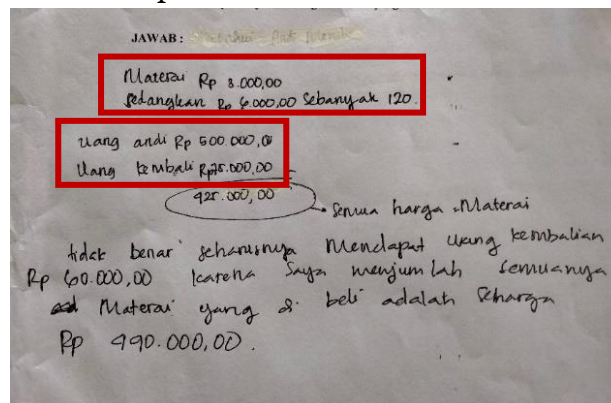 JAWAB:
Materai Rp 3.000,00
Sedangkan Rp 6.000,00 Sebanyak 120.
uang andi Rp 500.000,00
Uang kembali Rp 75.000,00
425.000,00
Semua harga Materai
tidak benar seharusnya Mendapat uang kembalian
Rp 60.000,00 karena Saya menjumlah semuanya
Materai yang di beli adalah Seharga
Rp 440.000,00.